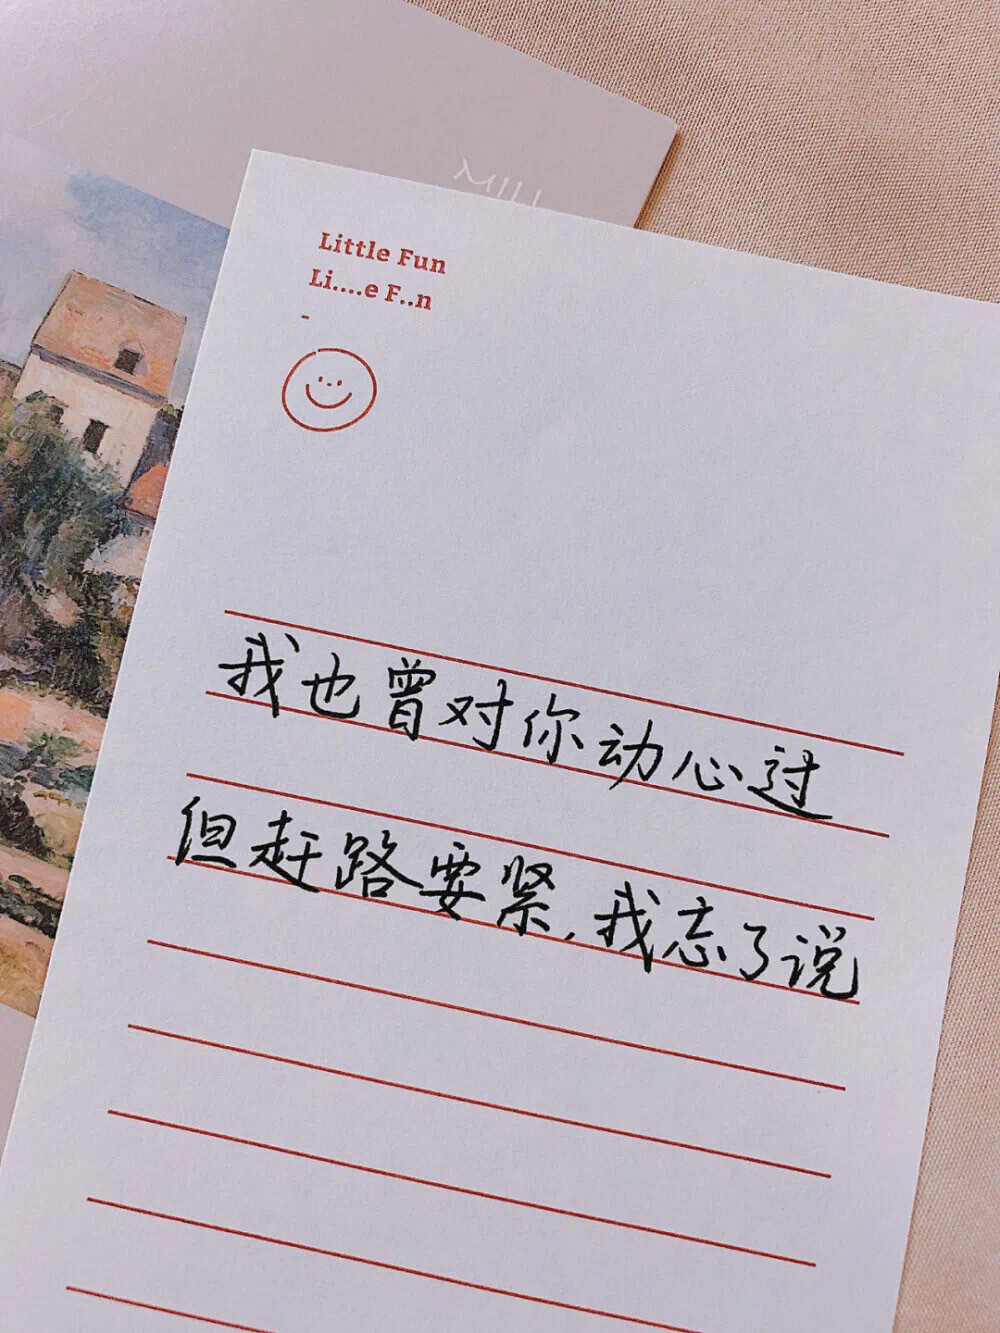 Little Fun
Li....e F..n
-
我也曾对你动心过
但赶路要紧,我忘了说